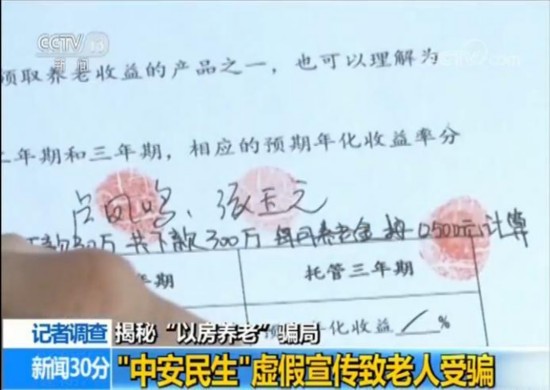 CCTV 13
新闻
领取养老收益的产品之一,也可以理解为
二年期和三年期,相应的预期年化收益率分
共下款300万 每月养老金 按 12500元计算
年期
托管三年期
年化收益 / %
记者调查 揭秘“以房养老”骗局
新闻30分 "中安民生"虚假宣传致老人受骗